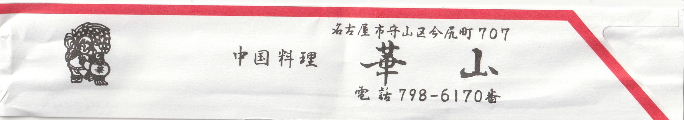 名古屋市守山区今尻町707
中国料理
華山
電話798-6170番